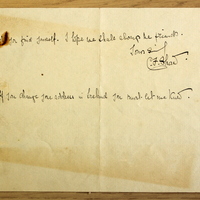 for yourself. I hope we shall always be friends.
Yours
C.F. Shaw
If you change your address in Ireland you must let me know.